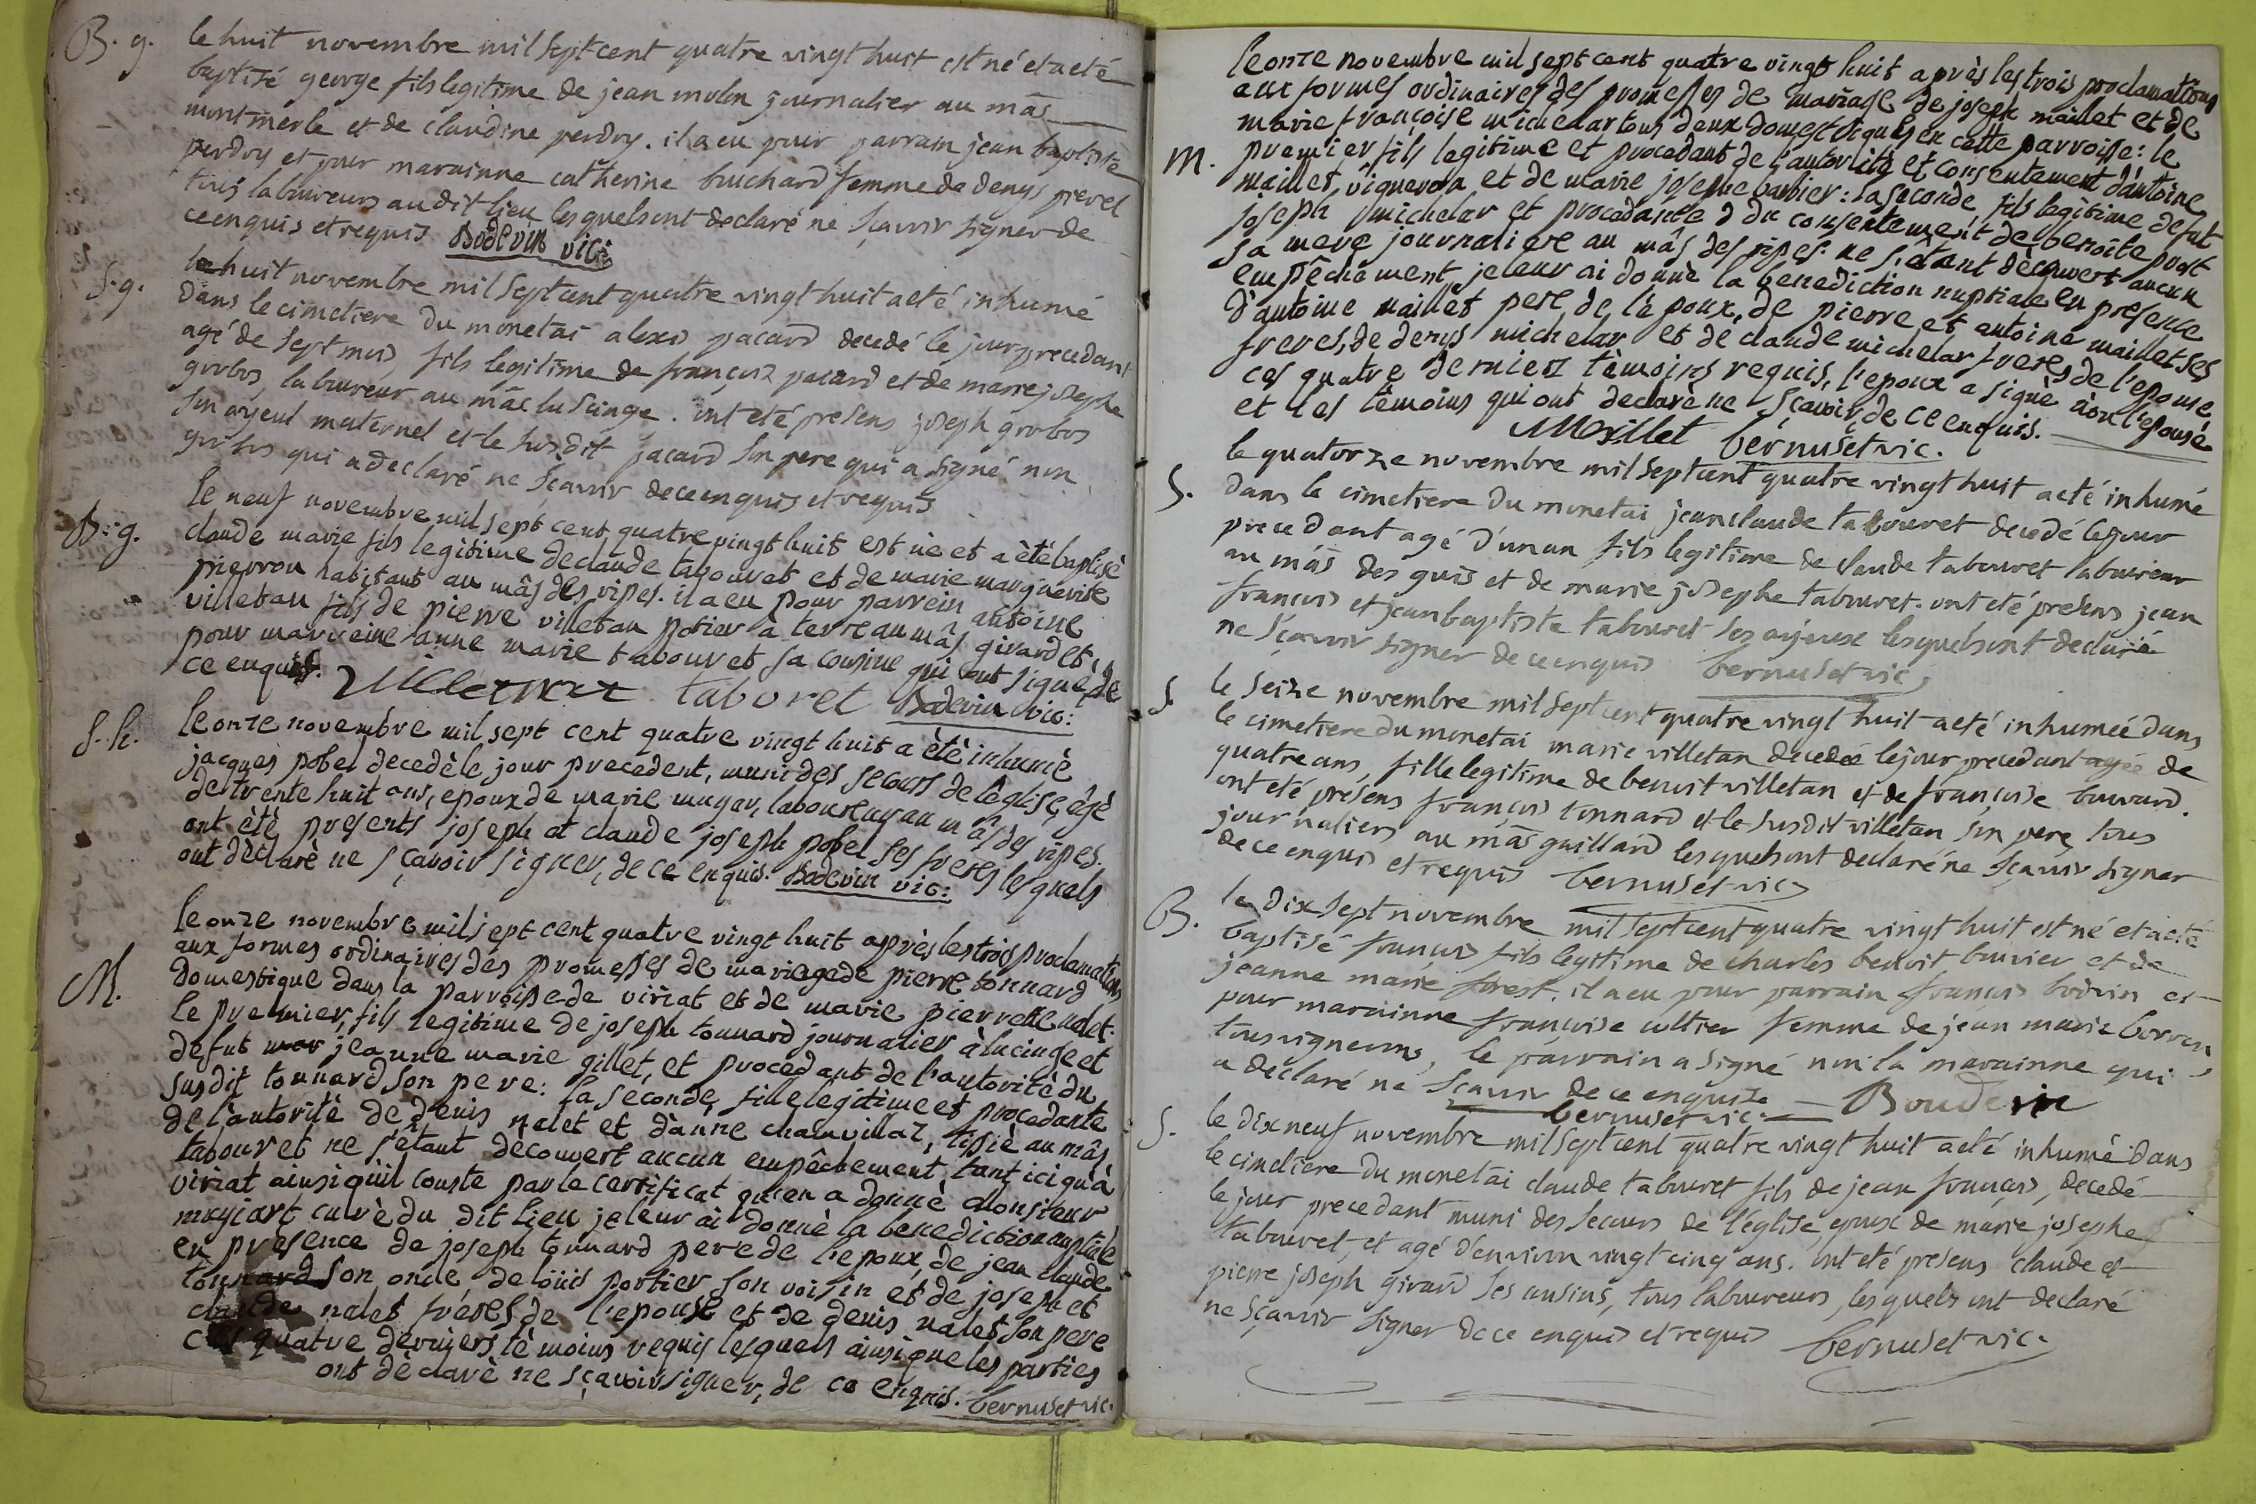 B. g. le huit novembre mil sept cent quatre vingt huit est né et a eté
baptisé george fils legitime de jean molin journalier au mâs
montmerle et de claudine perdry. il a eu pour parrain jean baptiste
perdry et pour marainne catherine buichard femme de denys prevel
tous laboureurs au dit lieu les quels ont declaré ne sçavoir signer de
ce enquis et requis Bodevin vic:
S. g. le huit novembre mil sept cent quatre vingt huit a eté inhumé
dans le cimetiere du monetai alexis pacard decedé le jour precedant
agé de sept mois fils legitime de françois pacard et de marie josephe
grobos, laboureur au mâs lu singe. ont eté presens joseph grobos
son ayeul maternel et le susdit pacard son pere qui a signé non
grobos qui a declaré ne sçavoir de ce enquis et requis
B. g. le neuf novembre mil sept cent quatre vingt huit est né et a èté baptisè
claude marie fils legitime de claude tabouret et de marie marguerite
pierron habitant au mâs des ripes. il a eu pour parrein antoine
villetan fils de pierre villetan potier à terre au mâs girard et
pour marreine anne marie tabouret sa cousine qui ont signé, de
ce enquis. villetan tabouret Bodevin vic:
S. h. le onze novembre mil sept cent quatre vingt huit a èté inhumè
jacques pobel decedè le jour precedent, muni des secours de l'eglise, âgé
de trente huit ans, epoux de marie mugar, laboureur au mâs des ripes.
ont èté presents joseph et claude joseph pobel ses freres les quels
ont dèclarè ne sçavoir signer, de ce enquis. Bodevin vic:
M. le onze novembre mil sept cent quatre vingt huit après les trois proclamations
aux formes ordinaires des promesses de mariage de pierre tonnard
domestique dans la parroisse de viriat et de marie pierrette nalet.
le premier, fils legitime de joseph tonnard journalier à lu cinge et
defut mar jeanne marie gillet, et procedant de l'autorité du
susdit tonnard son pere: la seconde fille legitime et procedante
de l'autorité de denis nalet et d'anne chanvillaz, tissiè au mâs
tabouret ne s'étant dècouvert aucun empêchement, tant ici qu'à
viriat ainsi qu'il conste par le certificat qu'en a donnè monsieur
mugiart curè du dit lieu je leur ai donnè la benediction nuptiale
en presence de joseph tonnard pere de l'epoux, de jean claude
tonnard son oncle de loüis portier son voisin et de joseph et
claude nalet fréres de l'epouse et de denis nalet son pere
ces quatre derniers tèmoins requis lesquels ainsi que les parties
ont dèclarè ne sçavoir signer, de ce enquis. bernuset vic.
le onze novembre mil sept cent quatre vingt huit après les trois proclamations
aux formes ordinaires des promesses de mariage de joseph maillet et de
marie françoise michelar tous deux domestiques en cette parroisse: le
M. premier fils legitime et procedant de l'autorité et consentement d'antoine
maillet, vigneron et de marie josephe barbier: la seconde fils legitime defut
joseph michelar et procedante du consentement de benoite pont
sa mere journaliere au mâs des ripes. ne s'étant dècouvert aucun
empêchement, je leur ai donnè la benediction nuptiale en presence
d'antoine maillet pere de l'èpoux, de pierre et antoine maillet ses
freres, de denys michelar et de claude michelar freres de l'epouse
ces quatre derniers tèmoins requis, l'epoux a signè non l'epouse
et les tèmoins qui ont declarè ne sçavoir, de ce enquis.
Maillet bernuset vic.
S. le quatorze novembre mil sept cent quatre vingt huit a eté inhumé
dans le cimetiere du monetai jean claude tabouret decedé le jour
precedant agé d'un an fils legitime de claude tabouret laboureur
au mâs des guis et de marie josephe tabouret. ont eté presens jean
françois et jean baptiste tabouret ses ayeux lesquels ont declaré
ne sçavoir signer de ce enquis bernuset vic.
S. le seize novembre mil sept cent quatre vingt huit a eté inhumeé dans
le cimetiere du monetai marie villetan decedeé le jour precedant ageé de
quatre ans, fille legitime de benoit villetan et de françoise buvard.
ont eté presens françois tonnard et le susdit villetan son pere, tous
journaliers au mâs guillard lesquels ont declaré ne sçavoir signer
de ce enquis et requis bernuset vic.
B. le dix sept novembre mil sept cent quatre vingt huit est né et a eté
baptisé françois fils legitime de charles benoit buvier et de
jeanne marie forest. il a eu pour parrain françois boivin et
pour marainne françoise cultier femme de jean marie borron
tous vignerons, le parrain a signé non la marainne qui
a declaré ne sçavoir de ce enquise Bouderin
bernuset vic.
S. le dix neuf novembre mil sept cent quatre vingt huit a eté inhumé dans
le cimetiere du monetai claude tabouret fils de jean françois, decedé
le jour precedant muni des secours de l'église epoux de marie josephe
tabouret, et agé d'environ vingt cinq ans. ont eté presens claude et
pierre joseph girard ses cousins, tous laboureurs, les quels ont declaré
ne sçavoir signer de ce enquis et requis bernuset vic.